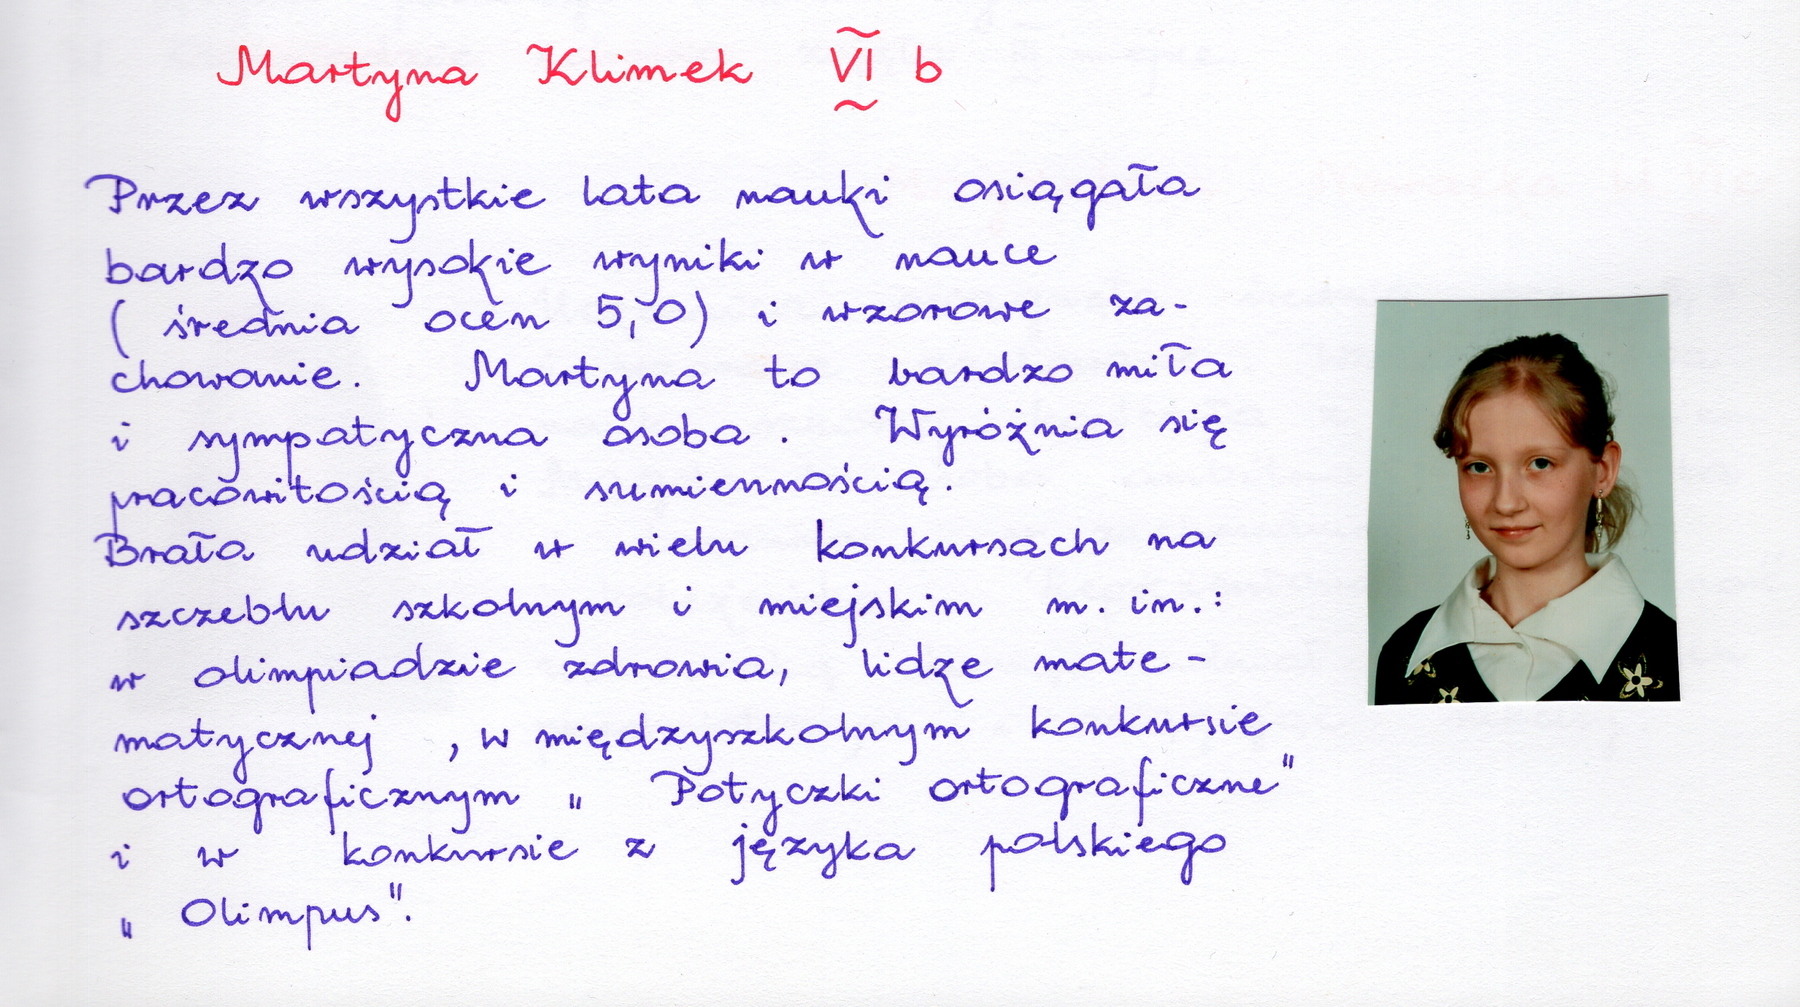 Martyna Klimek VI b
Przez wszystkie lata nauki osiągała
bardzo wysokie wyniki w nauce
( średnia ocen 5,0) i wzorowe za-
chowanie. Martyna to bardzo miła
i sympatyczna osoba. Wyróżnia się
pracowitością i sumiennością.
Brała udział w wielu konkursach na
szczeblu szkolnym i miejskim m. in.:
w olimpiadzie zdrowia, lidze mate-
matycznej , w międzyszkolnym konkursie
ortograficznym „ Potyczki ortograficzne"
i w konkursie z języka polskiego
„ Olimpus".